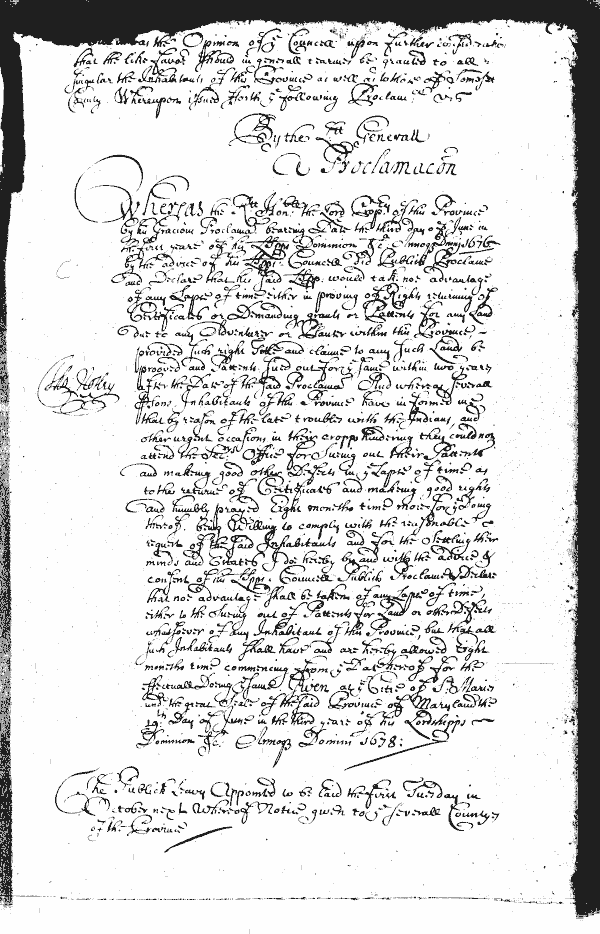 was the Opinion of ye Councell upon further
that the like favor should in generall tearmes be granted to all &
singular the Inhabitants of this Province as well as to those of Somersett
County. Whereupon issued forth ye following Proclamacn vizt
By the Lt Generall
A Proclamacon
Whereas the Rt Honble the Lord Propry of this Province
by his Gracious Proclamacn bearing Date the third day of June in
the first yeare of his Lspps Dominion &c Annoq Dmni 1676
by the advice of his Lspps Councell did Publickly Proclame
and Declare that his said Lspp: would take noe advantage
of any Lapse of time either in proving of Rights returning of
Certificates or Demanding grants or Pattents for any Land
due to any Adventurer or Planter within this Province
provided such right title and claime to any such Lands be
proved and Pattents sued out for ye same within two yeares
after the Date of the said Proclamacn And whereas severall
Psons Inhabitants of this Province have informed me
that by reason of the late troubles with the Indians, and
other urgent occasions in their cropps hindering they could not
attend the Secrys Office for Sueing out their Pattents
and making good other Defects in ye Lapse of time as
to the returne of Certificates and making good rights
and humbly prayed Eight moneths time more for ye doing
thereof. being Willing to comply with the reasonable
request of the said Inhabitants and for the Settling their
minds and Estates I doe hereby by and with the advice &
consent of his Lspps Councell Publish Proclame & Declare
that noe advantage shall be taken of any Lapse of time,
either to the Sueing out of Pattents for Land or other defects
whatsoever of any Inhabitant of this Province, but that all
such Inhabitants shall have and are hereby allowed Eight
moneths time commencing from ye Date hereof for the
effectuall Doeing ye same Given at ye Citie of St Maries
undr the great Seale of the said Province of Maryland the
19th day of June in the third yeare of his Lordshipps
Dominion &c. Annoq Domini 1678:
Cha Notley
The Publick Leavy Appointed to be laid the first Tuesday in
October next Whereof Notice given to ye severall Countyes
of the Province